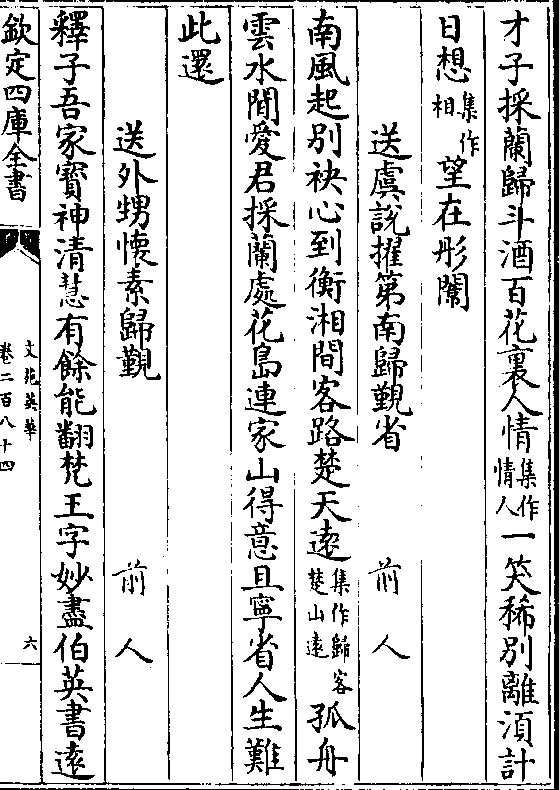 才子採蘭歸斗酒百花裏人情集作情人一笑稀別離須計
日想集作相望在彤闈
送虞說擢第南歸覲省 前人
南風起別袂心到衡湘間客路楚天遠集作歸客楚山遠孤舟
雲水間愛君採蘭處花島連家山得意且寧省人生難
此還
送外甥懷素歸覲 前人
釋子吾家寶神清慧有餘能翻梵王字妙盡伯英書遠
欽定四庫全書
文苑英華
卷二百八十四
六